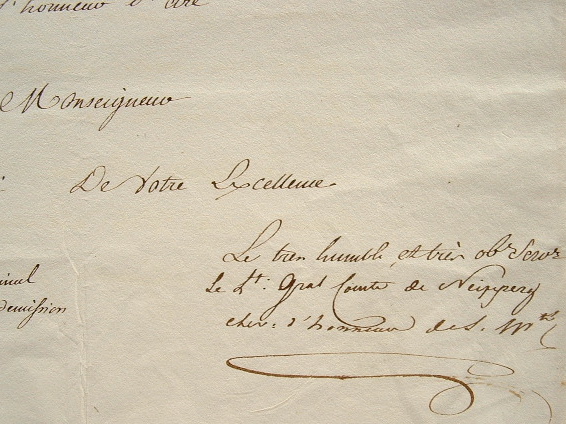 l'honneur d'être
Monseigneur
De Votre Excellence
Le très humble et très obr Servr
le Lt: Gral Comte de Neipperg
chevr d'honneur de S. Mté
demission